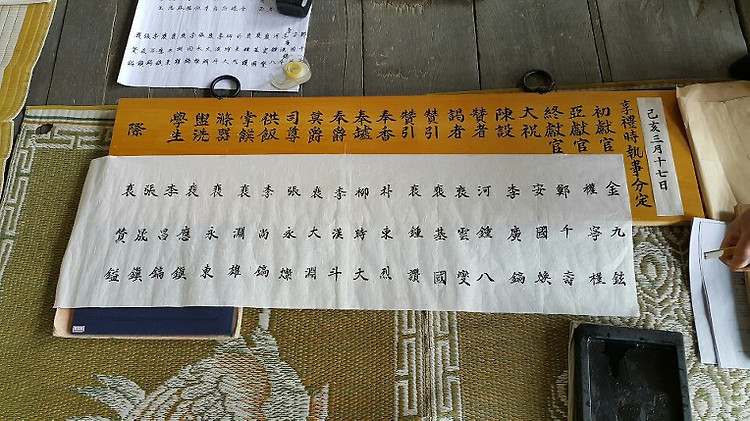 己亥三月十七日
享禮時執事分定
初獻官
亞獻官
終獻官
大祝
陳設
贊者
謁者
贊引
贊引
奉香
奉爐
奉爵
奠爵
司尊
供飯
掌饌
滌器
盥洗
學生
際
金九鉉
權寧槿
鄭千壽
安國煥
李廣鎬
河鍾八
裵雲燮
裵基國
裵鍾讚
朴東烈
柳時大
李漢斗
裵大淵
張永燦
李尚鎬
裵潤雄
裵永東
裵應鎭
李昌鎬
張晟鎭
裵贊鎰